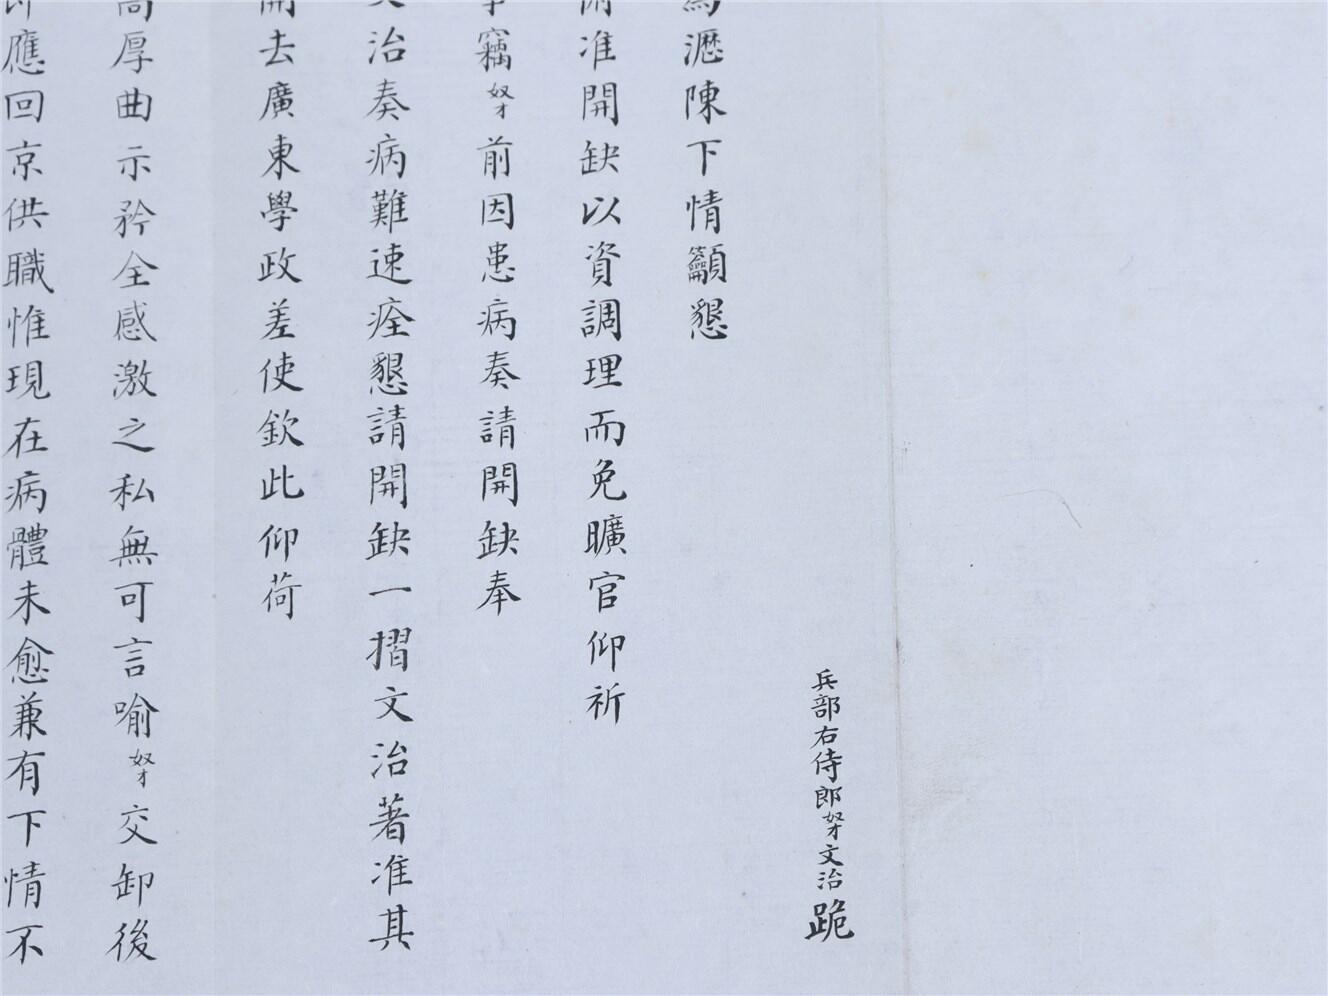 兵部右侍郎奴才文治跪
為瀝陳下情籲懇
准開缺以資調理而免曠官仰祈
竊奴才前因患病奏請開缺奉
文治奏病難速痊懇請開缺一摺文治著准其
開去廣東學政差使欽此仰荷
高厚曲示矜全感激之私無可言喻奴才交卸後
即應回京供職惟現在病體未愈兼有下情不